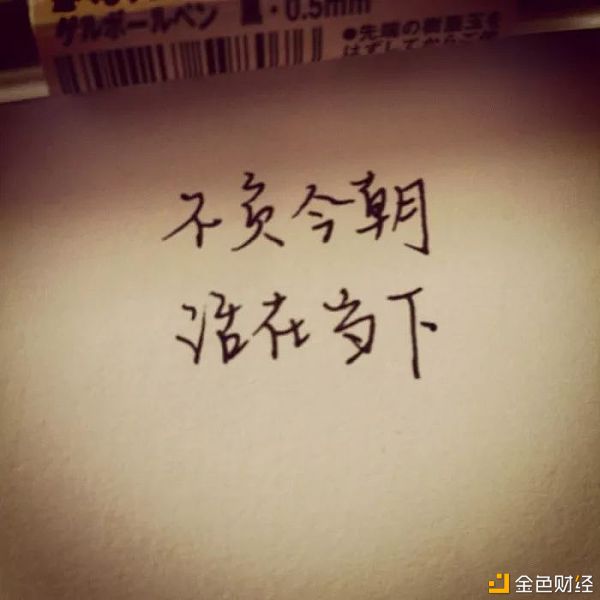 ゲルボールペン 黒・0.5mm
●先端の樹脂玉を
はずしてからご使
不负今朝
活在当下
金色财经